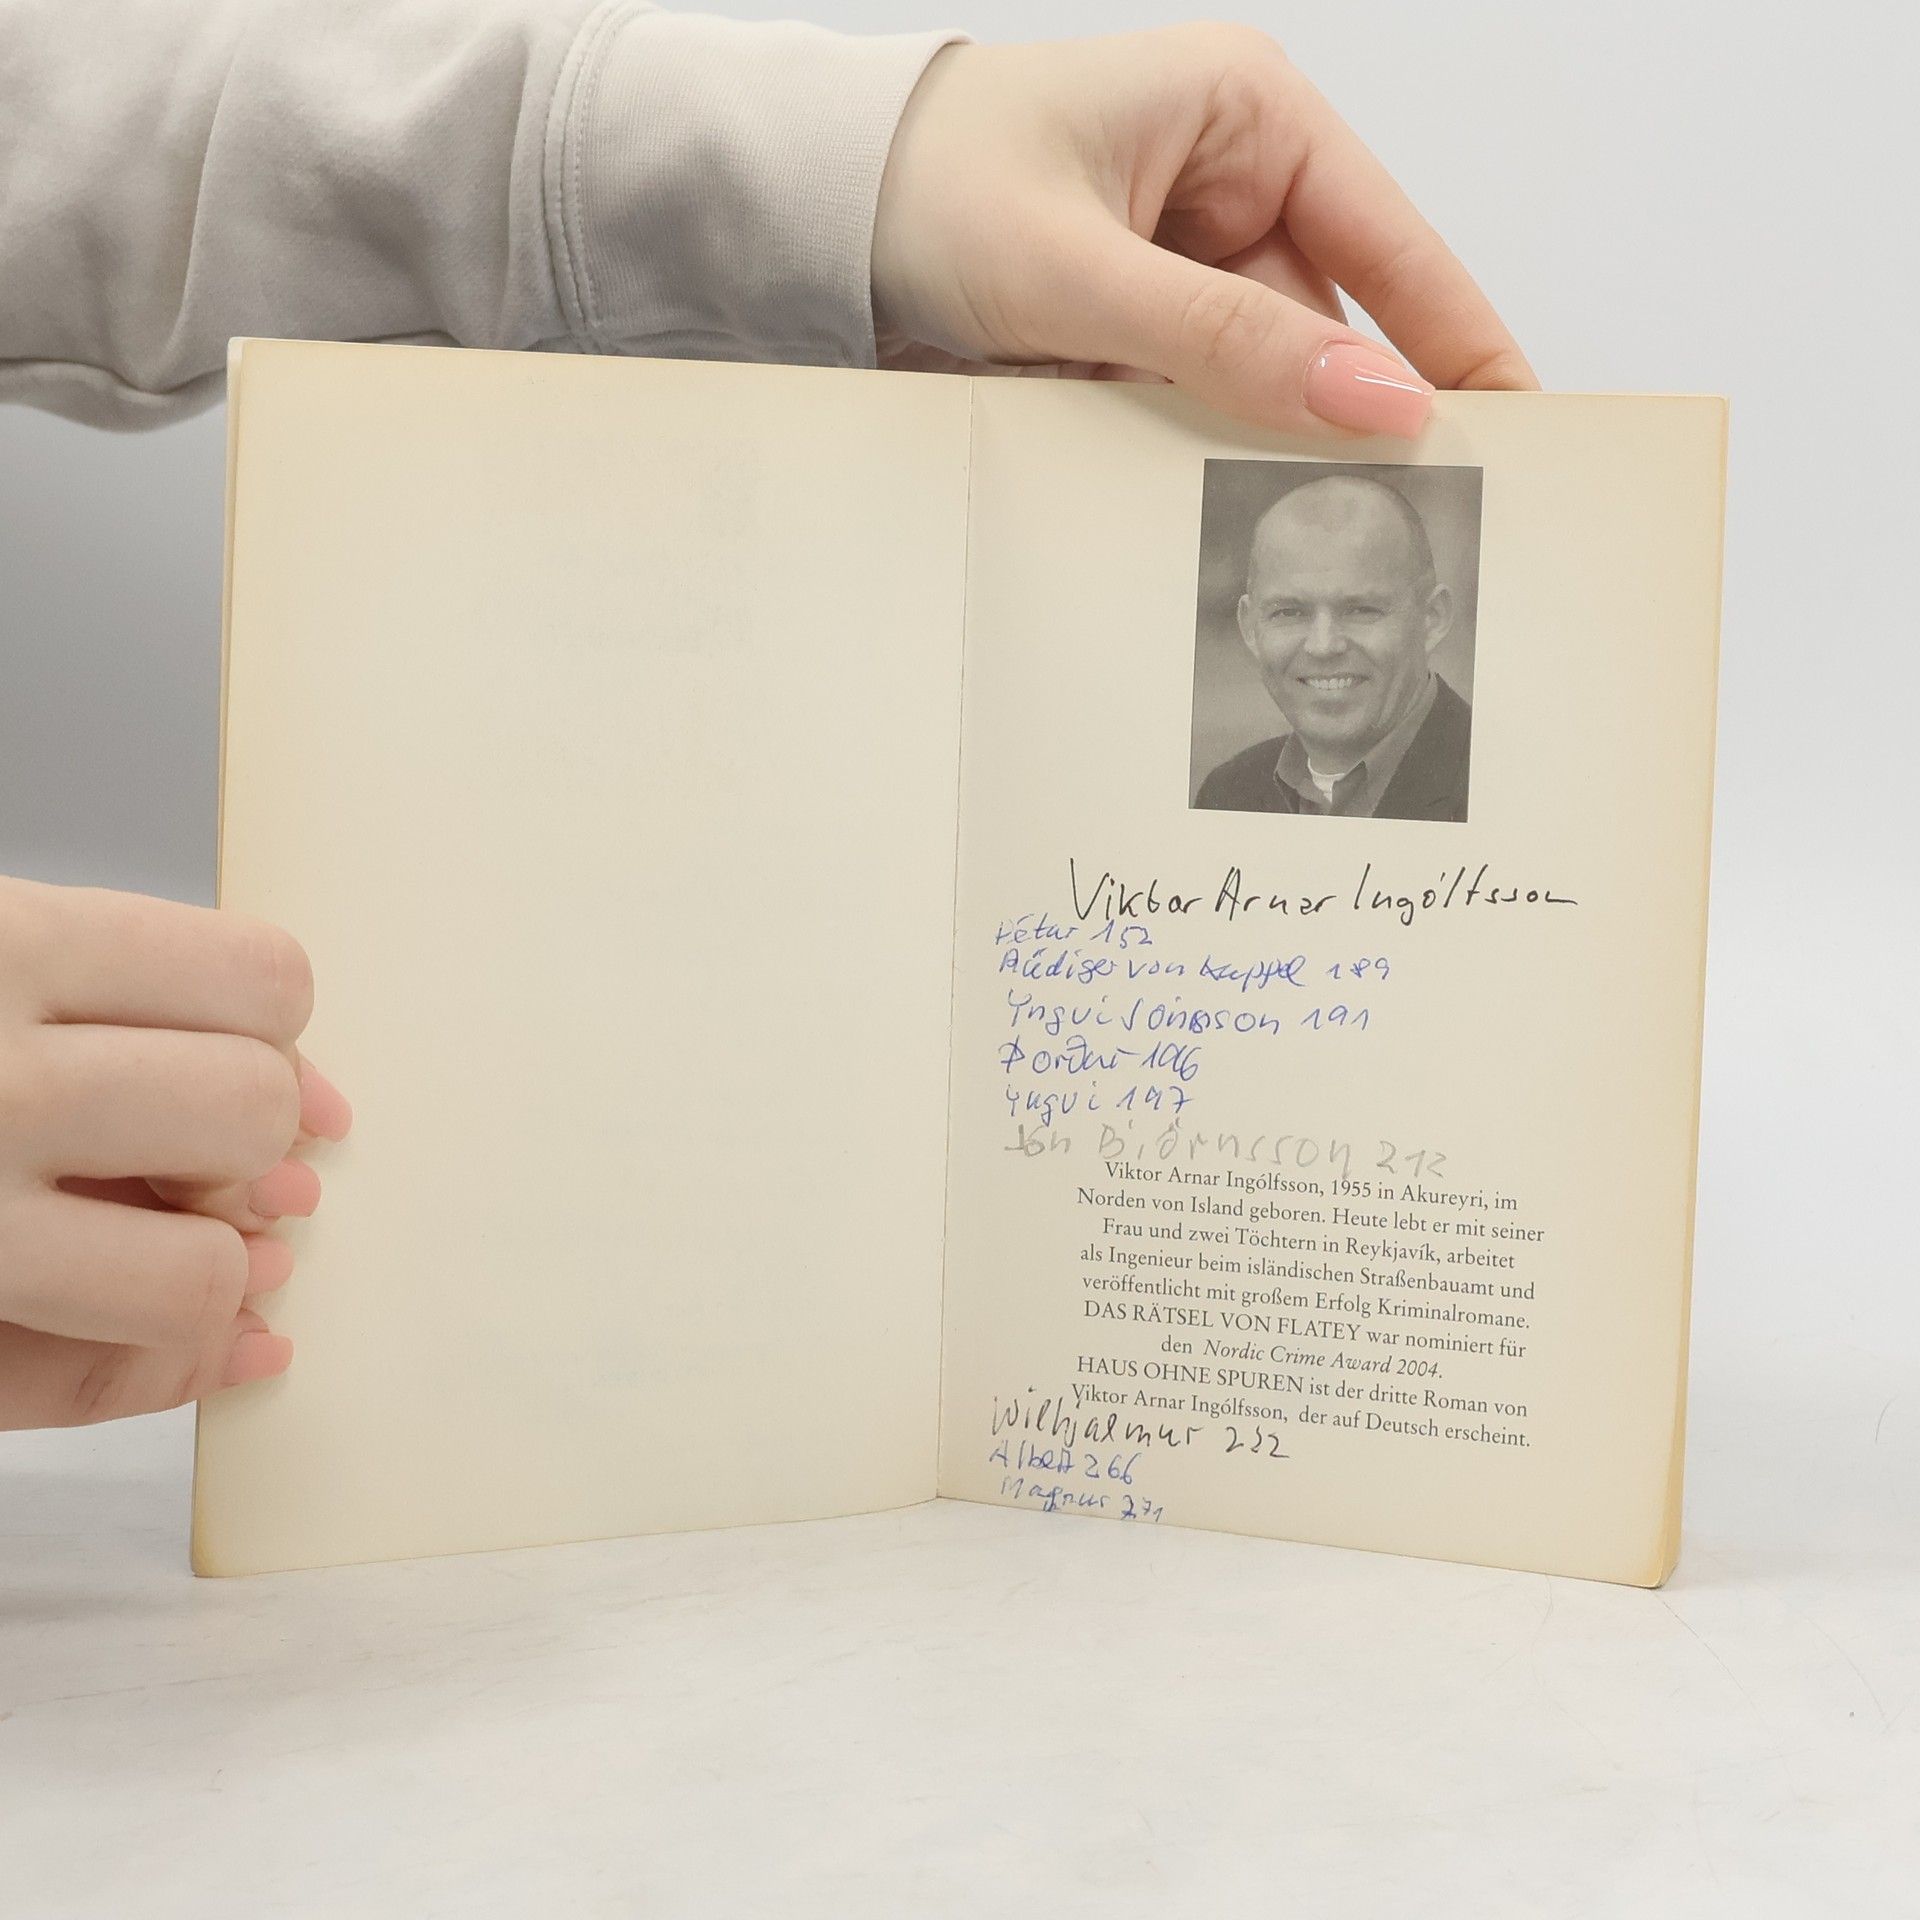 Viktor Arnar Ingólfsson
Pétur 152
Rüdiger von Kuppel 189
Yngvi Jónsson 191
Þorður 196
Yngvi 197
Jón Björnsson 212
Viktor Arnar Ingólfsson, 1955 in Akureyri, im
Norden von Island geboren. Heute lebt er mit seiner
Frau und zwei Töchtern in Reykjavík, arbeitet
als Ingenieur beim isländischen Straßenbauamt und
veröffentlicht mit großem Erfolg Kriminalromane.
DAS RÄTSEL VON FLATEY war nominiert für
den Nordic Crime Award 2004.
HAUS OHNE SPUREN ist der dritte Roman von
Viktor Arnar Ingólfsson, der auf Deutsch erscheint.
Wilhjalmur 232
Albert 266
Magnus 271